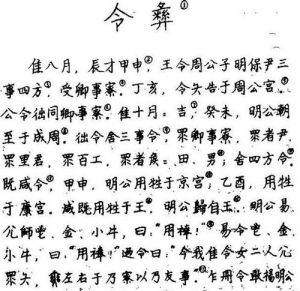 令彝①
隹八月,辰才甲申②,王令周公子明保尹三
事四方③,受卿事寮④。丁亥,令夨告于周公宫⑤。
公令𢓊同卿事寮。隹十月二吉⑥,癸未,明公朝
至于成周。𢓊令舍三事令⑦,眔卿事寮,眔者尹⑧
眔里君,眔百工,眔者侯:田、男⑨;舍四方令⑩
既咸令。甲申,明公用牲于京宫;乙酉,用牲
于康宫。咸既用牲于王。明公归自王。明公易
亢师鬯、金、小牛,曰:"用𥛱!"易令鬯、金、
小牛,曰:"用𥛱!"迺令曰:"今我隹令女二人亢
眔夨,左右于乃寮以乃友事!"乍册令敢扬明公